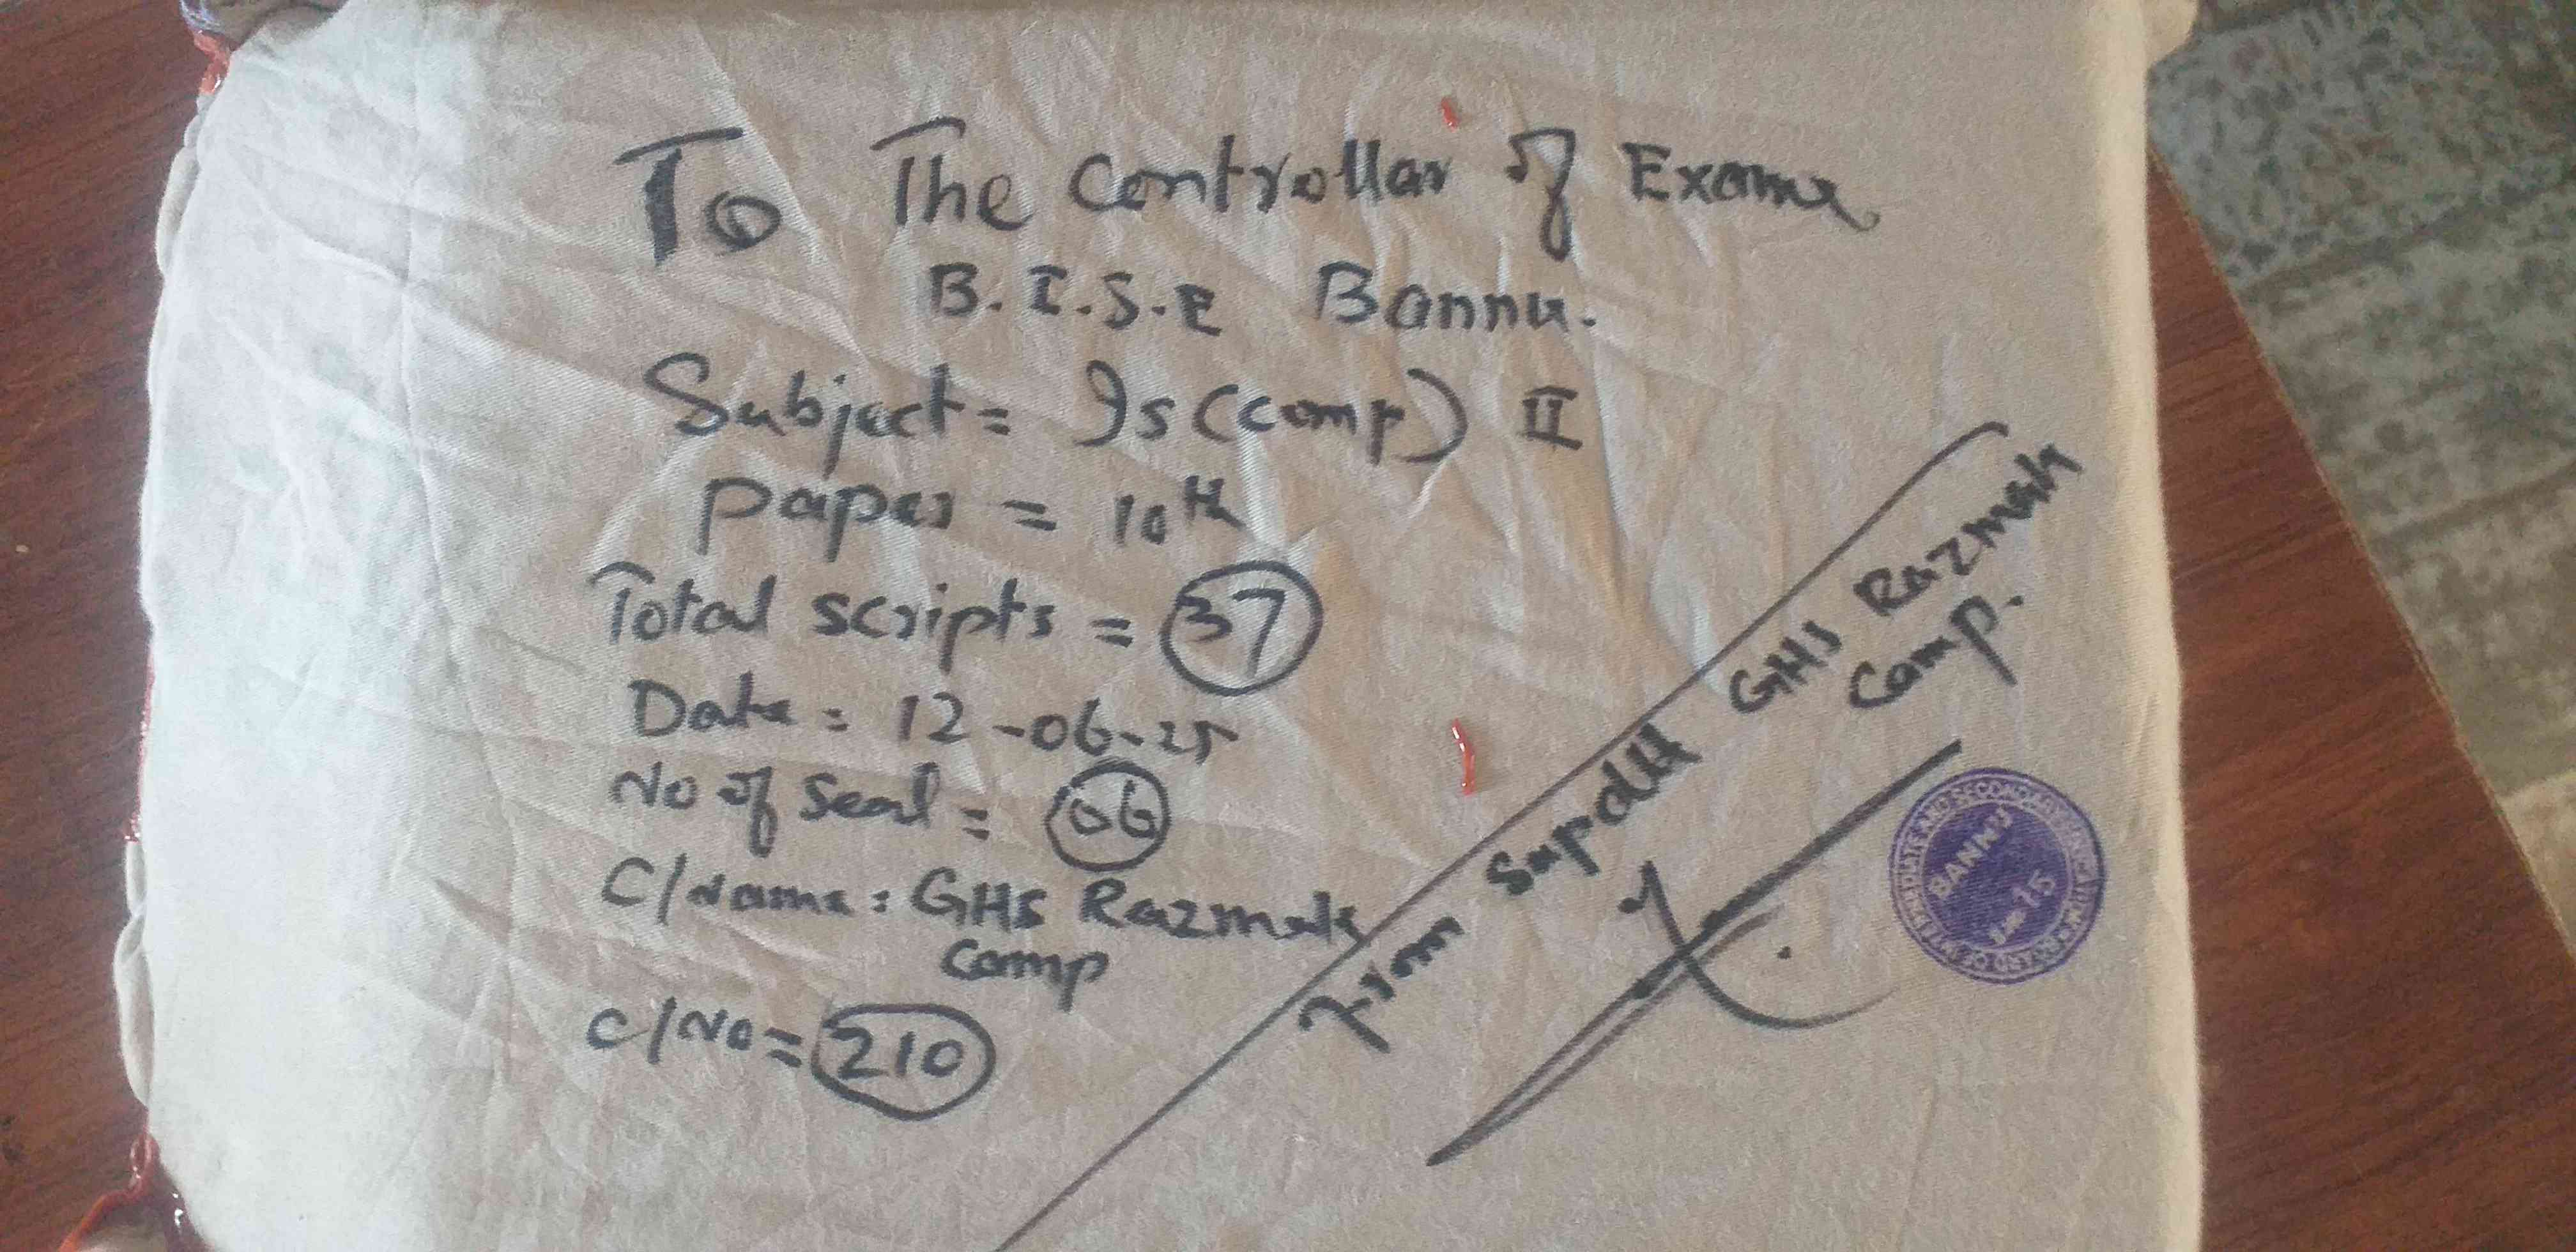 To The Controllar of Exams
B.I.S.E Bannu.
Subject = Is (comp) II
Paper = 10th
Total scripts = 37
Date = 12-06-25
No of Seal = 06
C/Name: GHS Razmak
Camp
C/No = 210
From Supdtt GHS Razmak
Camp.
BOARD OF INTERMEDIATE AND SECONDARY EDUCATION
BANNU